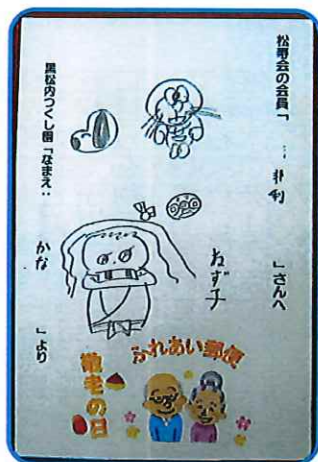 松寿会の会員「 … 非利 」さんへ
ねず子
黒松内つくし園「なまえ：かな 」より
ふれあい郵便
敬老の日